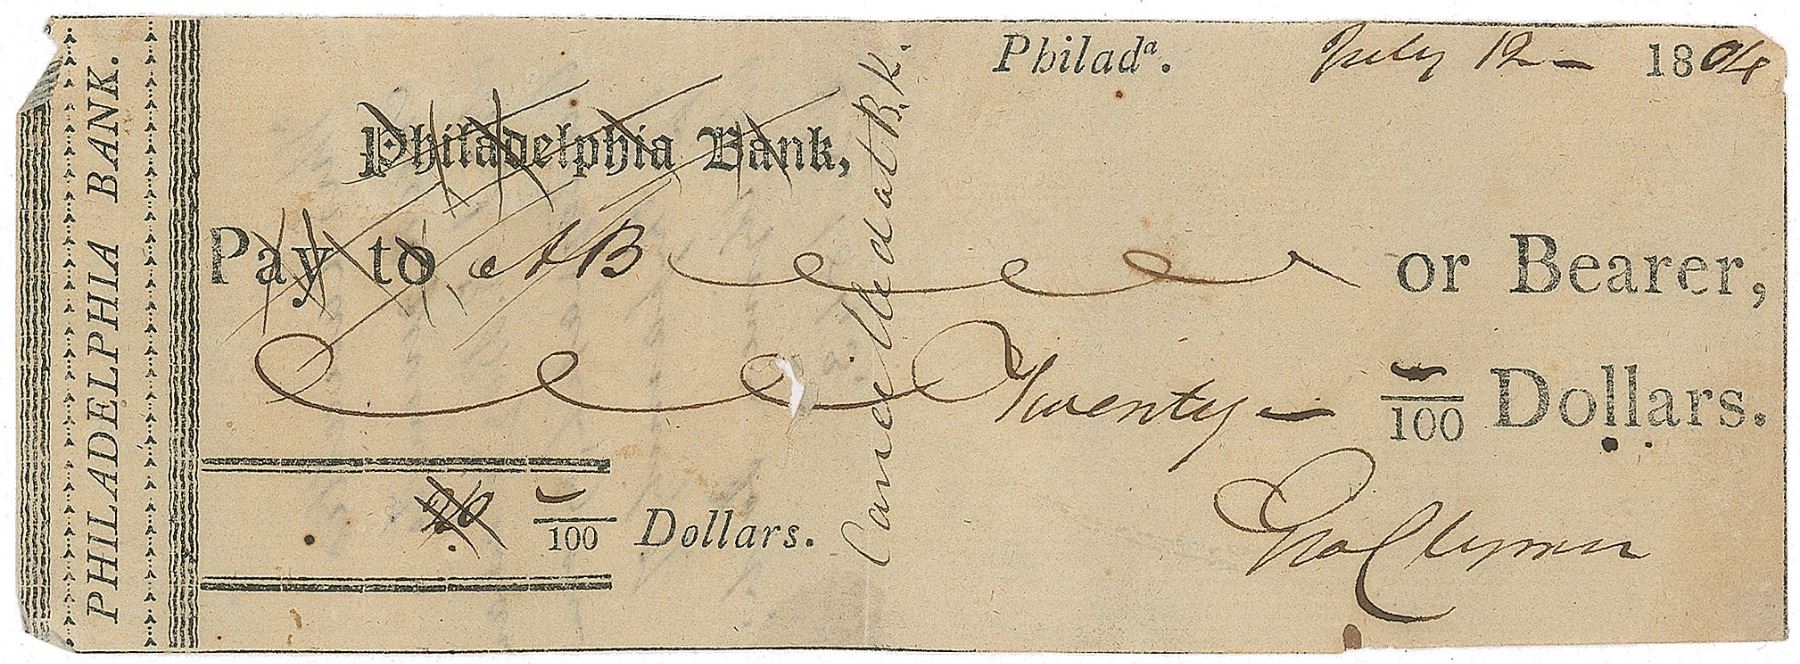 PHILADELPHIA BANK.
Philad<sup>a</sup>. July 12 - 1804
Philadelphia Bank,
Pay to AB or Bearer,
Twenty - /100 Dollars.
20 /100 Dollars.
Cancelled at B.K.
Geo Clymer